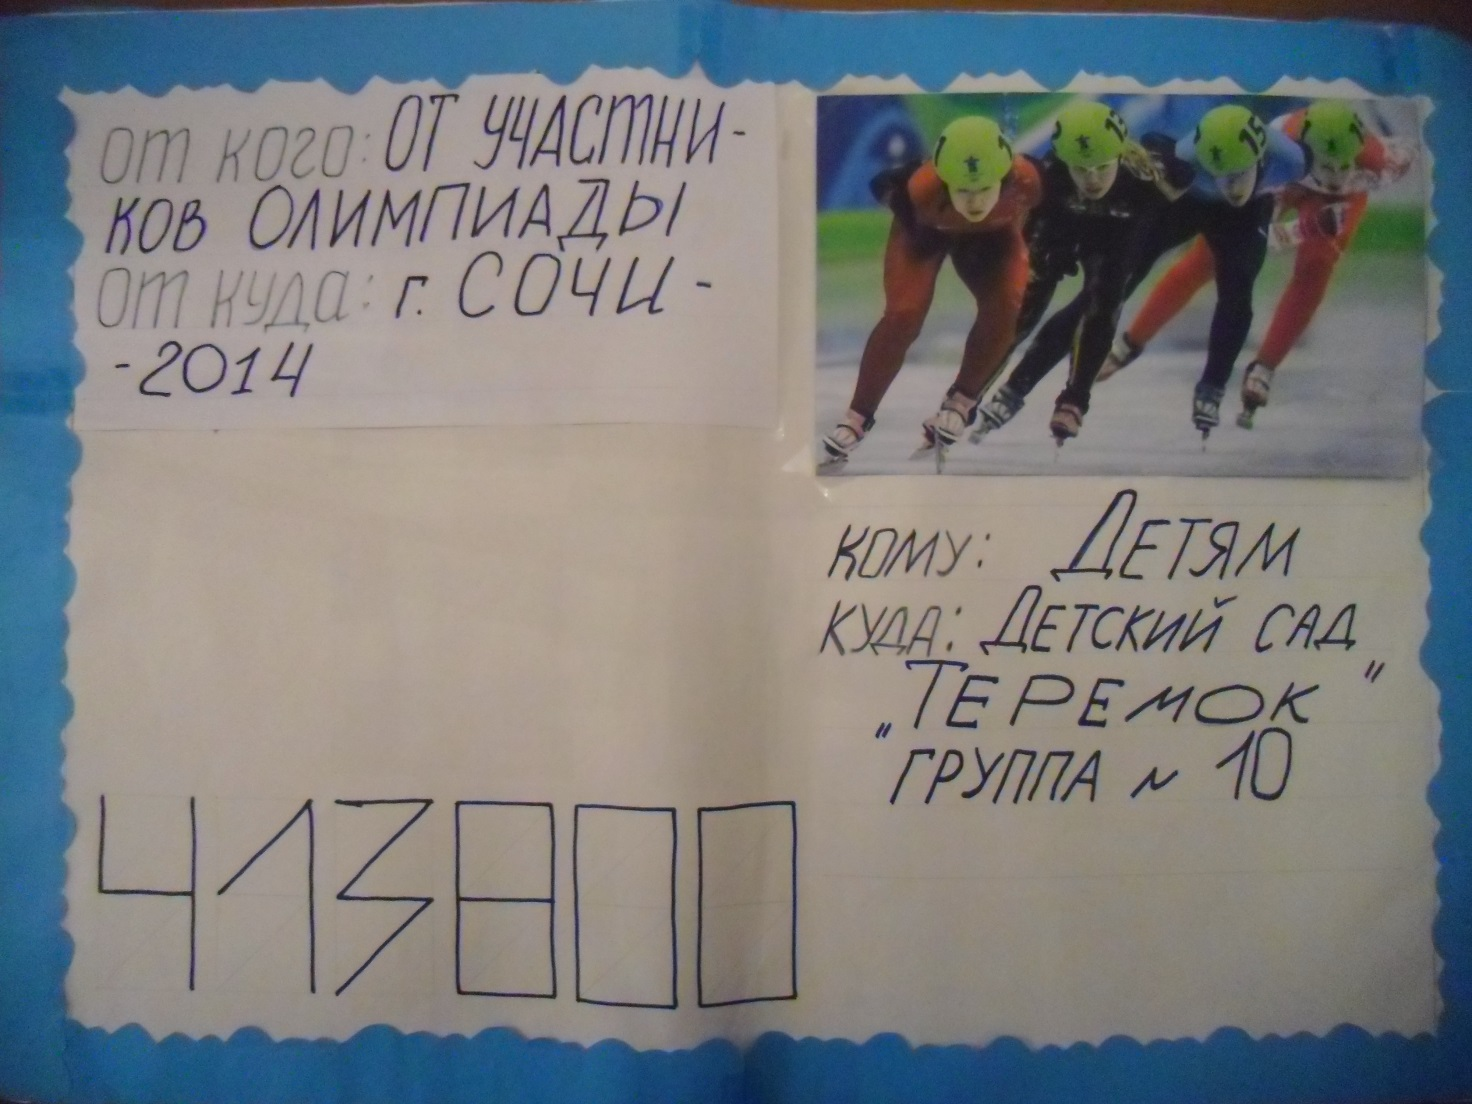 от кого: ОТ УЧАСТНИ-
КОВ ОЛИМПИАДЫ
от куда: г. СОЧИ -
-2014
КОМУ: ДЕТЯМ
КУДА: ДЕТСКИЙ САД
"ТЕРЕМОК"
ГРУППА N 10
413800